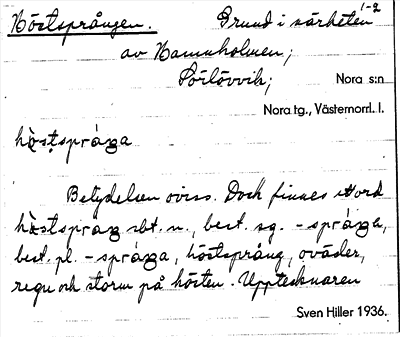 Höstsprången. Grund i närheten 1-2
av Hamnholmen;
Sörlövvik; Nora s:n
Nora tg., Västernorrl. l.
hö̀stspráŋa
Betydelsen oviss. Dock finnes ett ord
hö̀stspraŋ sbt. n., best. sg. -spráŋa,
best. pl. -spráŋa, höstsprång, oväder,
regn och storm på hösten. Upptecknaren
Sven Hiller 1936.